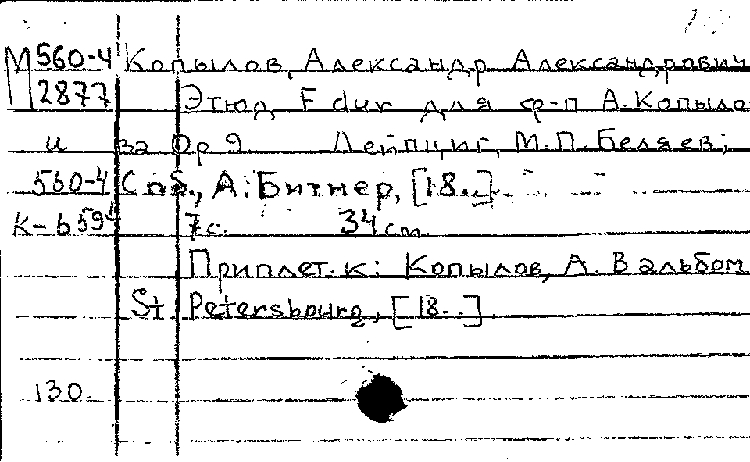 М 560-4 Копылов, Александр Александрович
2877 Этюд, F dur для ф-п А. Копыло
и ва Ор 9. Лейпциг, М.П. Беляев;
560-4 Спб., А. Битнер, [18..].
К-659 7с. 34 cm.
Приплет. к: Копылов, А. В альбом
St. Petersbourg, [18..].
130.